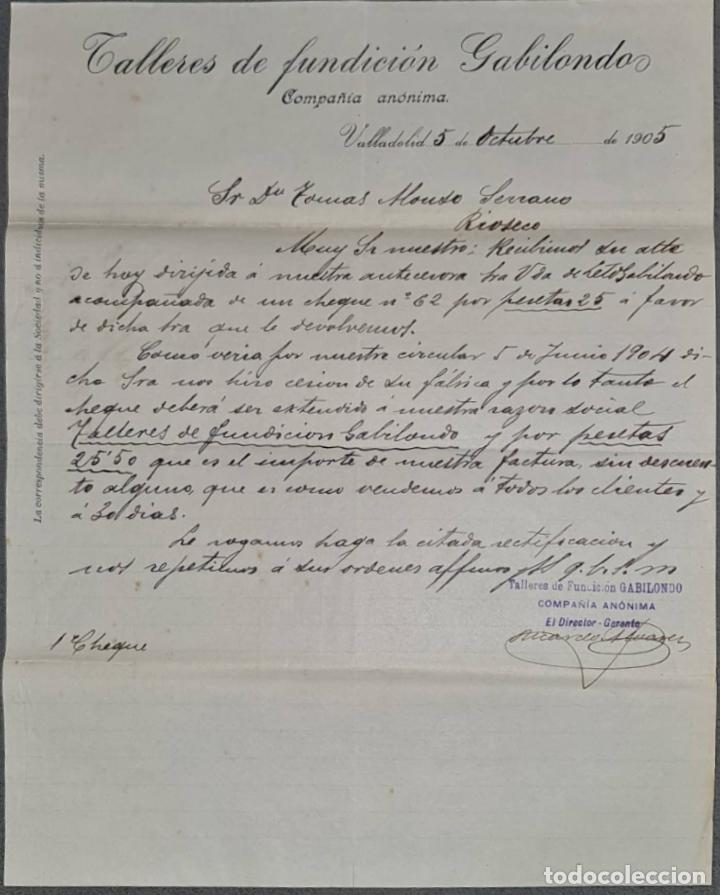 Talleres de fundición Gabilondo
Compañía anónima.
Valladolid 5 de Octubre de 1905
La correspondencia debe dirigirse á la Sociedad y no á individuos de la misma.
Sr Dn Tomas Alonso Serrano
Rioseco
Muy Sr nuestro: Recibimos su atta
de hoy dirijida á nuestra antecesora Sra Vda de Leto Gabilondo
acompañada de un cheque nº 62 por pesetas 25 á favor
de dicha Sra que le devolvemos.
Como veria por nuestra circular 5 de Junio 1904 di-
cha Sra nos hizo cesion de su fábrica y por lo tanto el
cheque deberá ser extendido á nuestra razon social
Talleres de fundicion Gabilondo y por pesetas
25'50 que es el importe de nuestra factura, sin descuen-
to alguno, que es como vendemos á todos los clientes y
á 30 dias.
Le rogamos haga la citada rectificacion y
nos repetimos á sus ordenes affmos q. b. s. m
Talleres de Fundición GABILONDO
COMPAÑÍA ANÓNIMA
El Director-Gerente
1 Cheque
todocoleccion